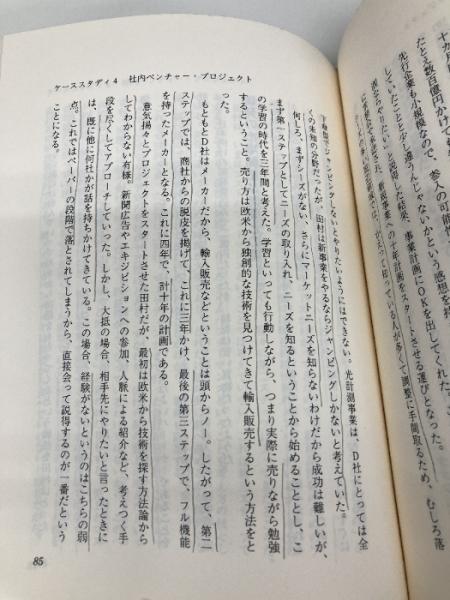 ケーススタディ4 社内ベンチャー・プロジェクト
十カ月
たとえ数百億円かけて
先行企業も小規模なので、参入の可能性
していたことと少し違うんじゃないかという感想を持
説得した結果、事業計画にOKを出してくれた。
十年計画をスタートさせる運びとなった。
っている人が多くて調整に手間取るため、むしろ落
ジャンピングしないとやりたいようにはできない。光計測事業は、D社にとっては全
くの未知の分野だったが、田村は新事業をやるならジャンピングしかないと考えていた。
何しろ、まずシーズがない、さらにマーケットニーズを知らないわけだから成功は難しいが、
まず第一ステップとしてニーズの取り入れ、ニーズを知るということから始めることとし、こ
の学習の時代を三年間と考えた。学習といっても行動しながら、つまり実際に売りながら勉強
するということ。売り方は欧米から独創的な技術を見つけてきて輸入販売するという方法をと
った。
もともとD社はメーカーだから、輸入販売などということは頭からノー。したがって、第二
ステップでは、商社からの脱皮を掲げて、これに三年かけ、最後の第三ステップで、フル機能
を持ったメーカーとなる。これに四年で、計十年の計画である。
意気揚々とプロジェクトをスタートさせた田村だが、最初は欧米から技術を探す方法論から
してわからない有様。新聞広告やエキジビションへの参加、人脈による紹介など、考えつく手
段を尽くしてアプローチしていった。しかし、大抵の場合、相手先にやりたいと言ったときに
は、既に他に何社かが話を持ちかけてきている。この場合、経験がないというのはこちらの弱
点。これではペーパーの段階で落とされてしまうから、直接会って説得するのが一番だという
ことになる。
85